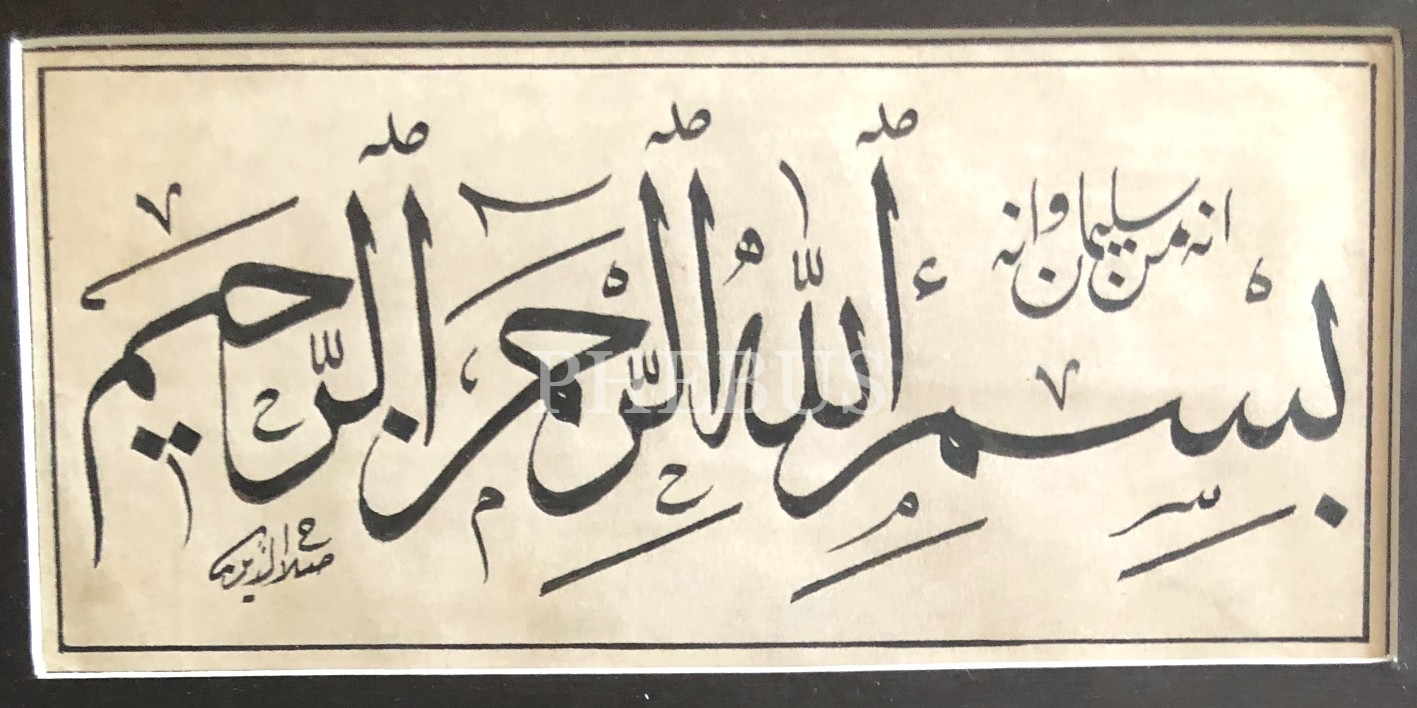 انه من سليمان وانه
بِسْمِ اللّٰهِ الرَّحْمٰنِ الرَّحِيمِ
صلاح الدين
PHEBUS